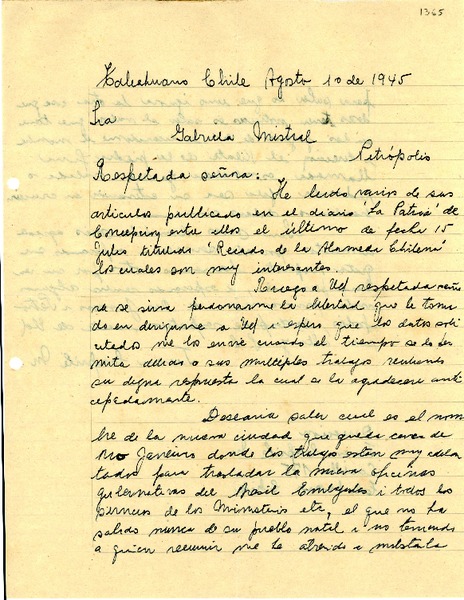 1365
Talcahuano Chile Agosto 10 de 1945
Sra
Gabriela Mistral
Petrópolis
Respetada señora:
He leido varios de sus
articulos publicado en el diario "La Patria" de
Concepcion, entre ellos el último de fecha 15
Julio titulado "Recado de la Alameda Chilena"
los cuales son muy interesantes.
Ruego a Ud respetada seño
ra se sirva perdonarme la libertad que le toma
do en dirigirme a Ud i espero que los datos soli
citados me los envie cuando el tiempo se lo per
mita debido a sus multiples trabajo
su digna respuesta la cual se la agradecere anti
cipadamente.
Desearia saber cual es el nom
bre de la nueva ciudad que queda cerca de
Rio Janeiro donde los trabajo estan muy adelan
tados para trasladar la nueva oficinas
gubernativas del Brasil Embajadas i todos los
Servicios de los Ministerio etc, el que no ha
salido nunca de su pueblo natal i no teniendo
a quien recurrir me he atrevido a molestarla